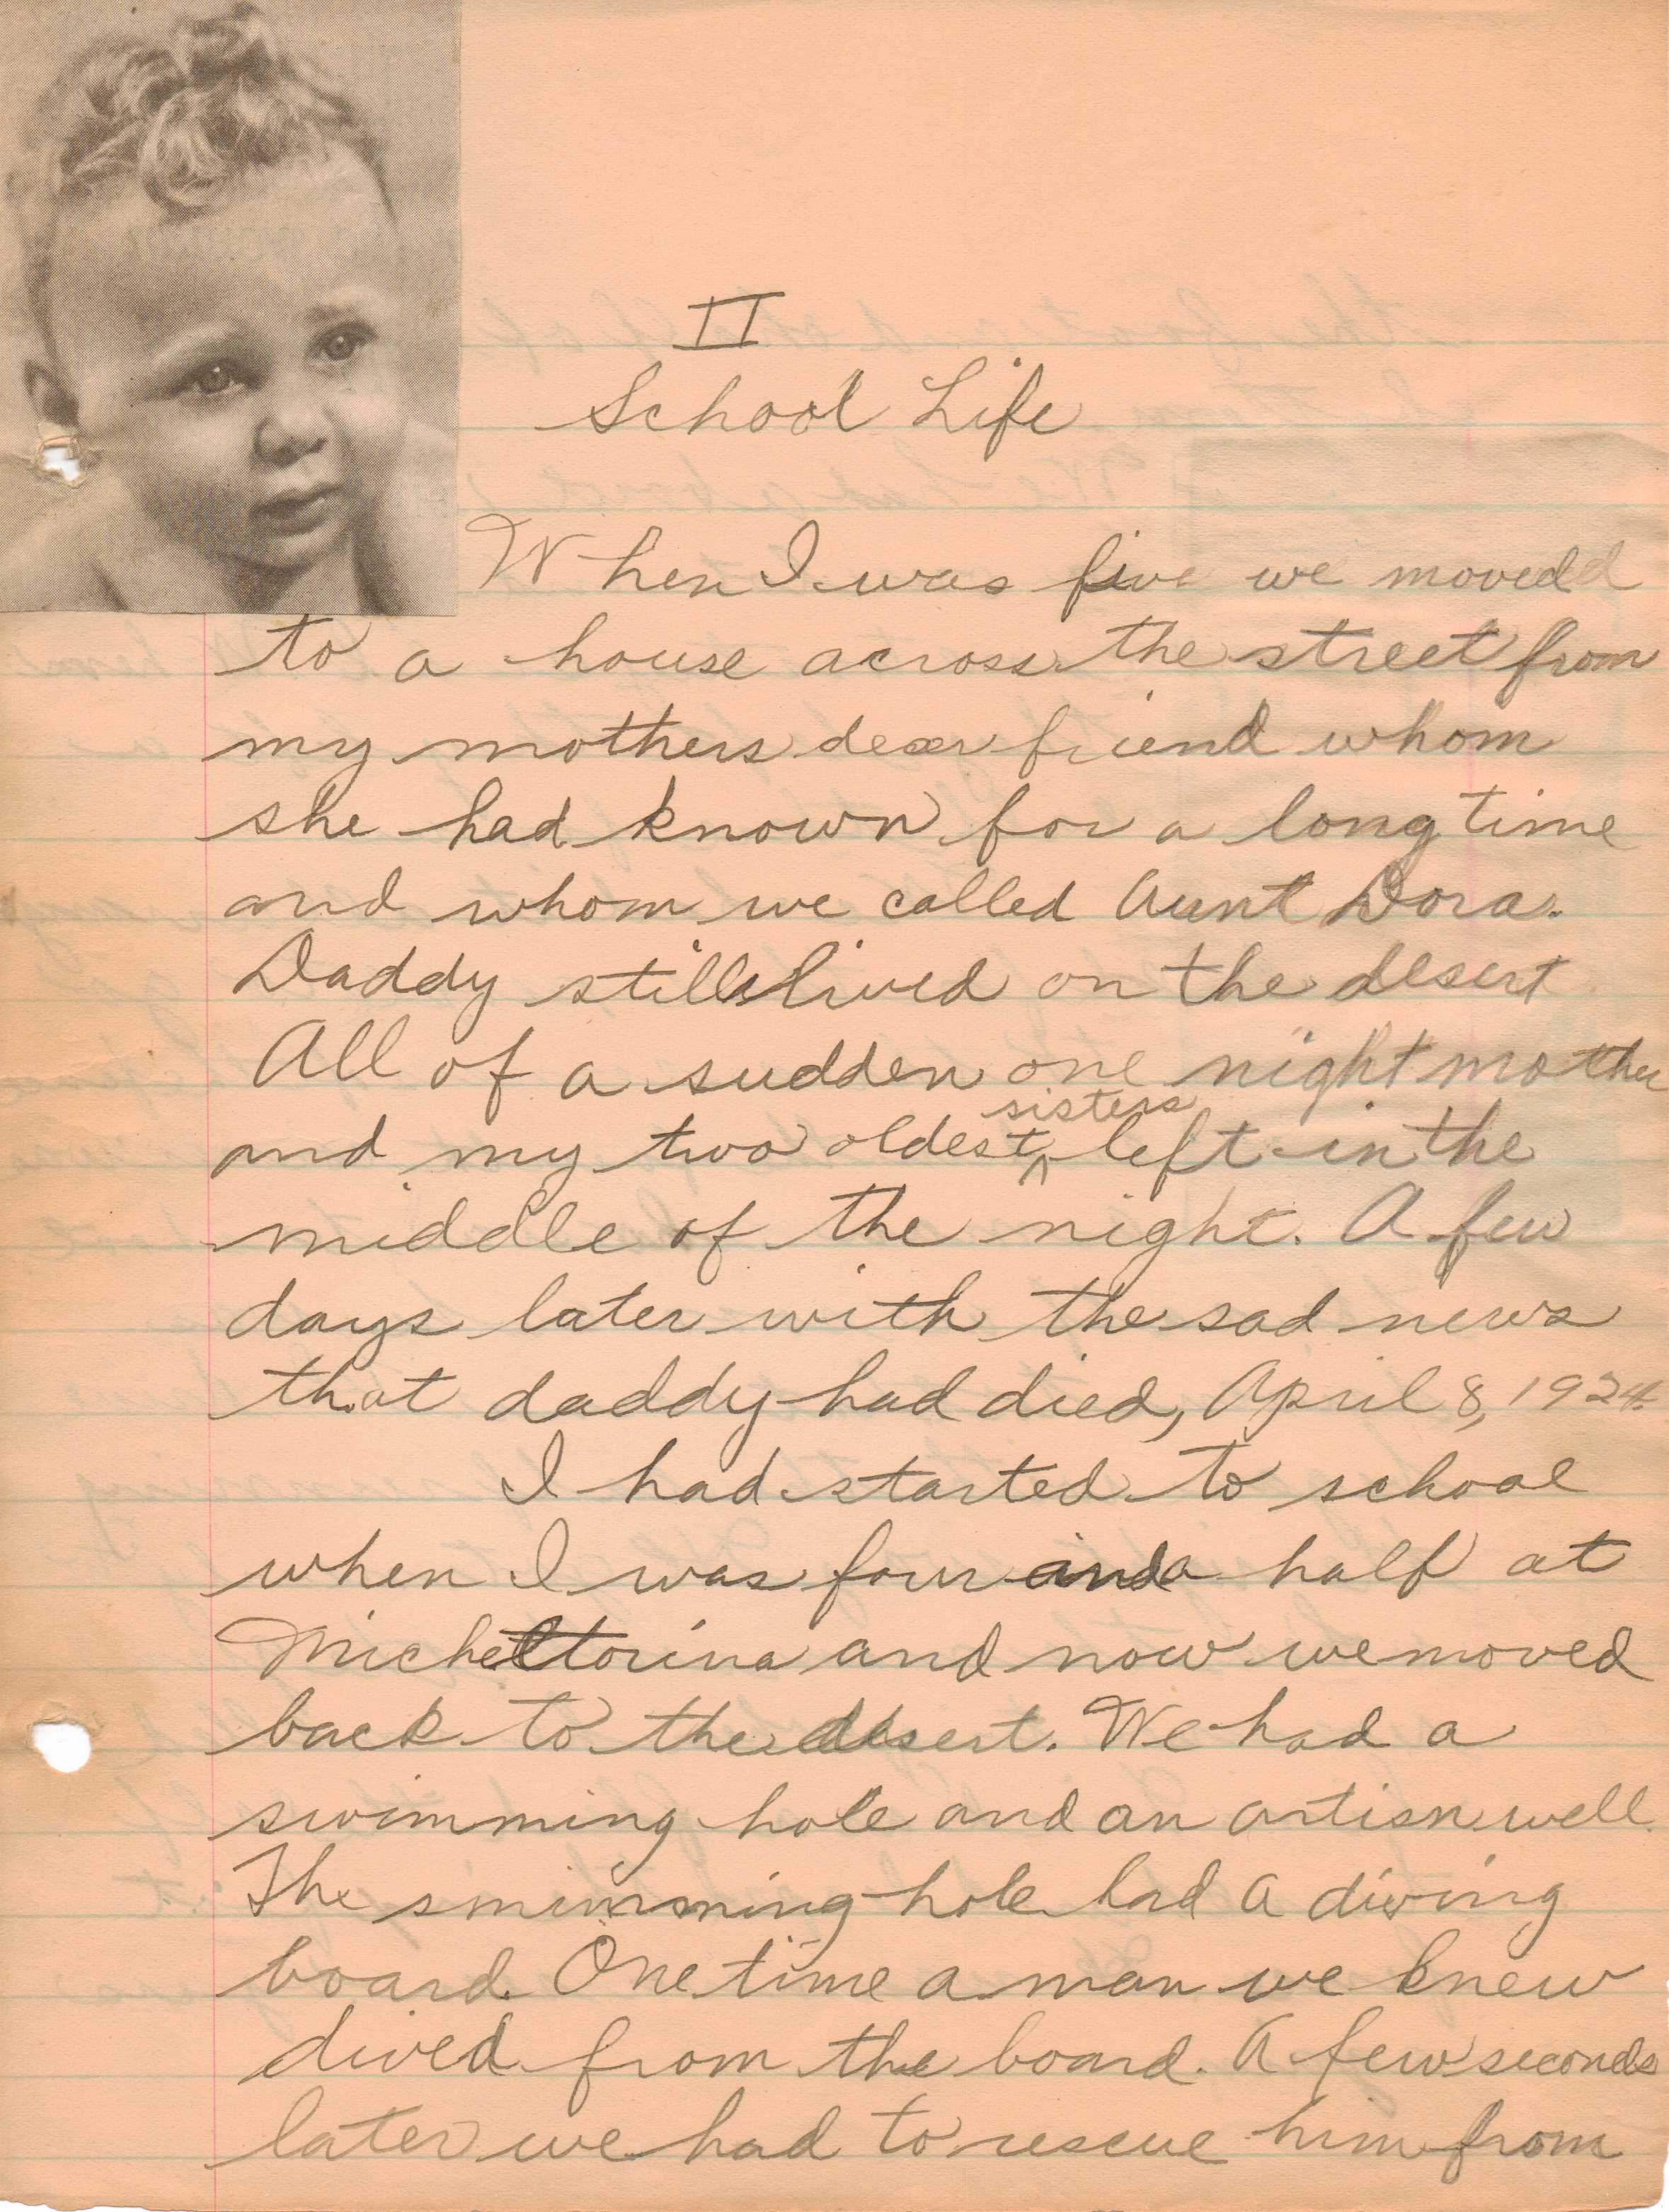 II
School Life
When I was five we moved
to a house across the street from
my mothers dear friend whom
she had known for a long time
and whom we called Aunt Dora.
Daddy still lived on the desert
All of a sudden one night mother
sisters
and my two oldest ^ left in the
middle of the night. A few
days later with the sad news
that daddy had died, April 8, 1924.
I had started to school
when I was four and a half at
Micheltorina and now we moved
back to the desert. We had a
swimming hole and an artisn well.
The swimming hole had a diving
board. One time a man we knew
dived from the board. A few seconds
later we had to rescue him from